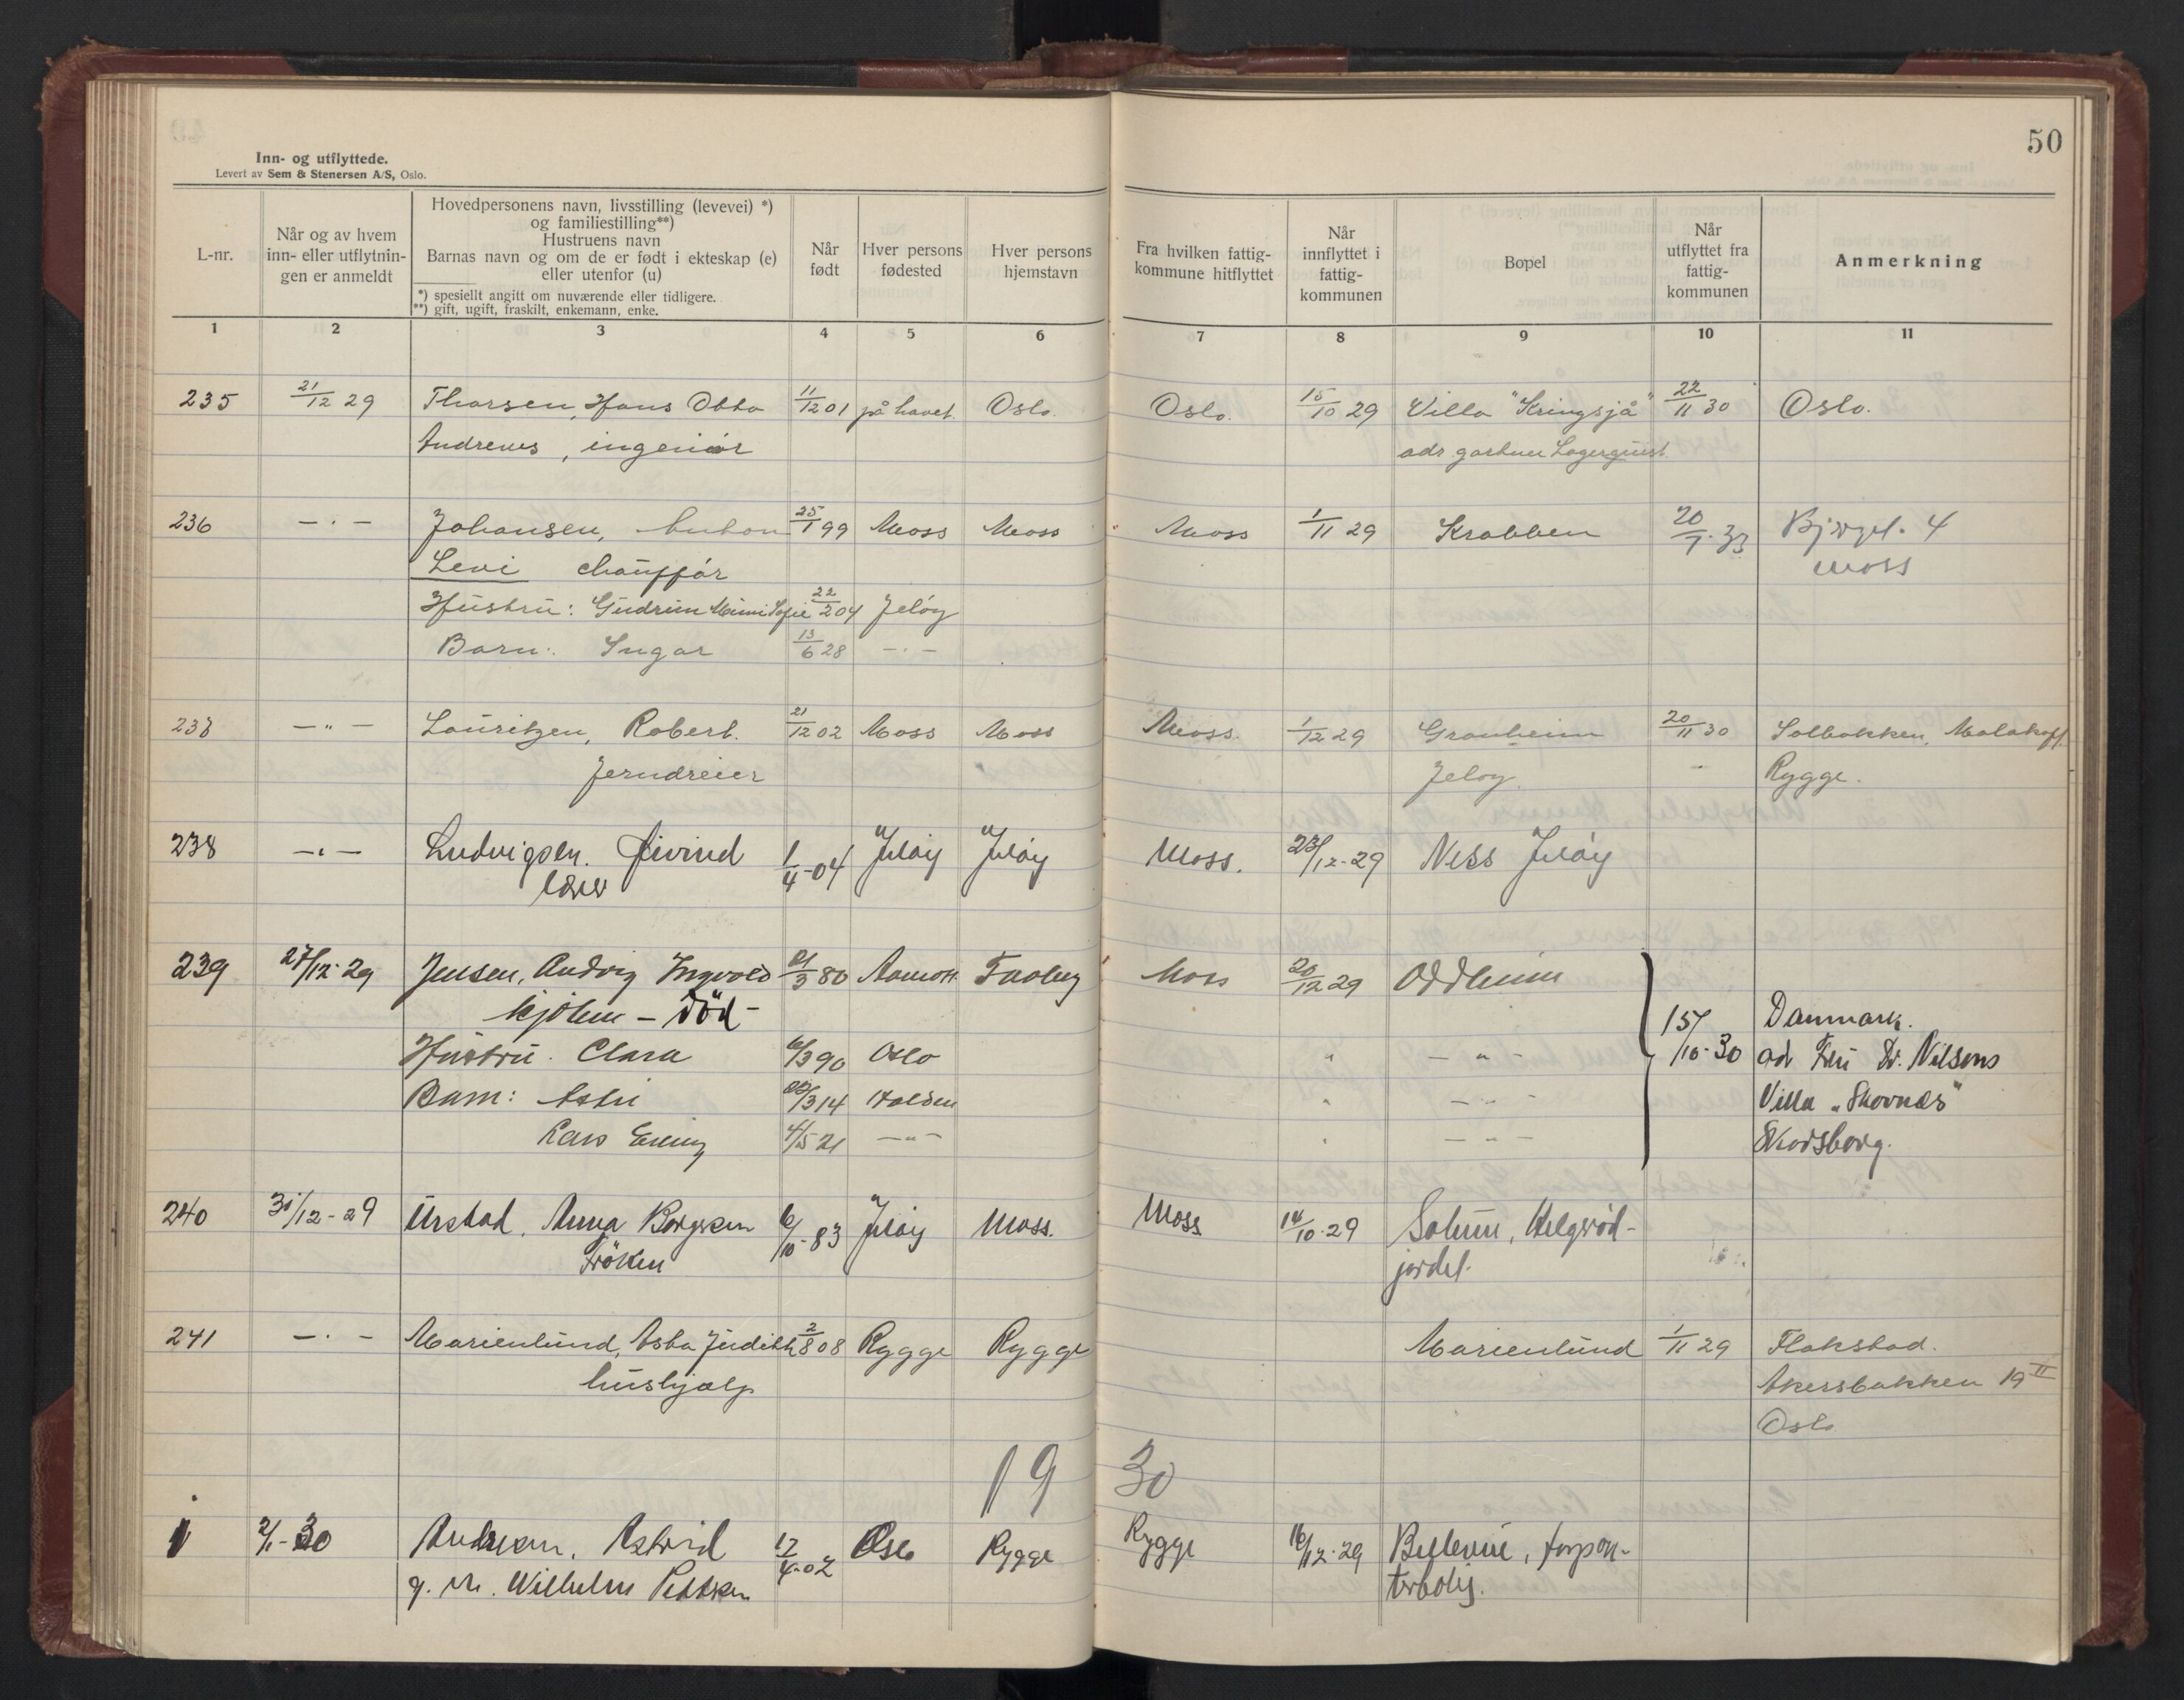 50
Inn- og utflyttede.
Levert av Sem & Stenersen A/S, Oslo.
L-nr.
Når og av hvem inn- eller utflytnin- gen er anmeldt
Hovedpersonens navn, livsstilling (levevei) *)
og familiestilling**)
Hustruens navn
Barnas navn og om de er født i ekteskap (e)
eller utenfor (u)
*) spesiellt angitt om nuværende eller tidligere.
**) gift, ugift, fraskilt, enkemann, enke.
Når født
Hver persons fødested
Hver persons hjemstavn
Fra hvilken fattig- kommune hitflyttet
Når innflyttet i fattig- kommunen
Bopel
Når utflyttet fra fattig- kommunen
Anmerkning
1 2 3 4 5 6 7 8 9 10 11
235 21/12 29 Thorsen, Hans Otto 11/12 01 på havet Oslo. Oslo. 15/10 29 Villa "Kringsjå" 22/11 30 Oslo.
Andreas, ingeniør adr. gartner Lagerquist.
236 — · — Johansen, Anton 25/1 99 Moss Moss Moss 1/11 29 Krabben 20/7. 33 4
Levi chauffør Moss
Hustru: Gudrun Mimi Sofie 22/2 04 Jeløy
Barn: Ingar 13/6 28 — · —
237 — " — Lauritzen, Robert. 21/12 02 Moss Moss Moss. 1/12 29 Granheim 20/11 30 Solbakken, Malakoff
Jerndreier Jeløy. Rygge.
238 — · — Ludvigsen. Øivind 1/4-04 Jeløy Jeløy Moss. 23/12-29 Ness Jeløy
239 27/12-29 Jensen, Ludvig Ingvald 21/3 80 Moss 20/12 29 Oddheim
— død —
Hustru. Clara 6/3 90 Oslo " — " — 15/10-30 Danmark.
ad Fru Dr. Nilsens
Barn: Astri 22/3 14 Halden " — " — Villa „Skovnæs"
Lars Erling 4/5 21 — " — " — " — Skodsborg.
240 31/12-29 Urstad, Anna Borgersen 6/10-83 Jeløy Moss. Moss 14/10-29 Solum, Helgerød-
Frøken jordet.
241 — · — Marienlund, Asta Judith 2/8 08 Rygge Rygge Marienlund 1/11 29 Flakstad.
hushjælp Akersbakken 19 II
Oslo
19 30
1 2/1-30 Andresen, Astrid 12/4-02 Oslo Rygge Rygge 16/12-29 Bellevue,
g. m. Wilhelm Pettersen